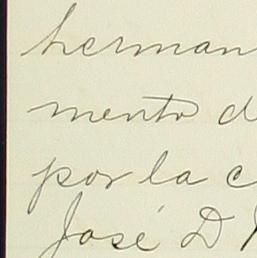 herman
mento d
por la c
José D